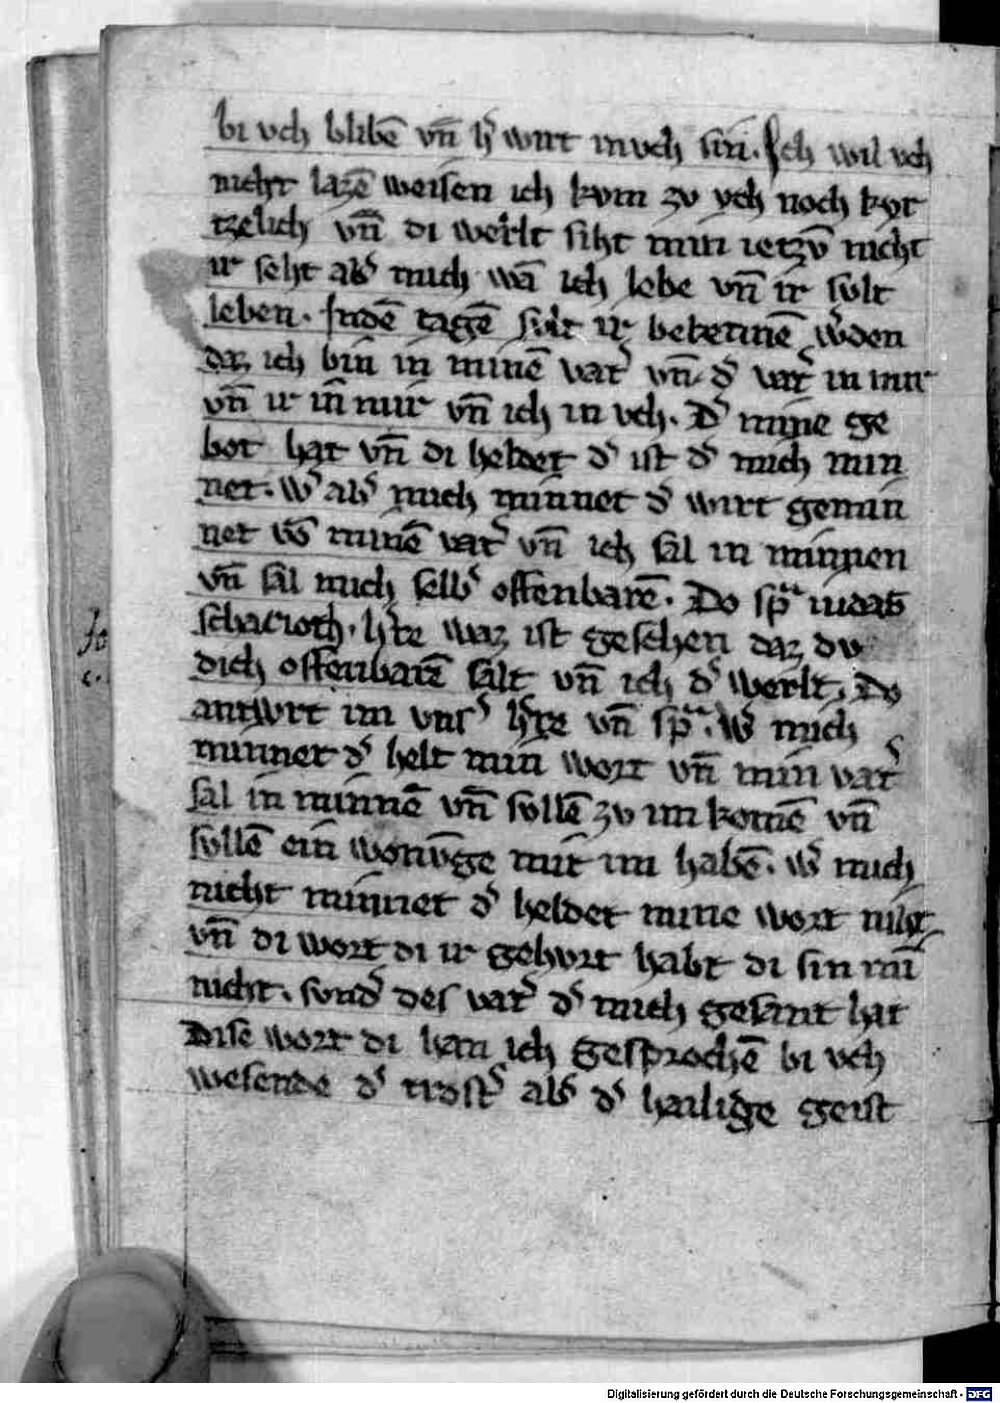 bi vch blibē vn̄ h̾ wirt in vch sin. Jch wil vch
nicht lazē weisen ich kvm zv vch noch kvr
tzelich vn̄ di werlt siht min ietzv̄ nicht
ir seht ab̾ mich wā ich lebe vn̄ ir svlt
leben. Jndē tagē svlt ir bekennē w̾den
daz ich bin in minē vat̾ vn̄ d̾ vat̾ in mir
vn̄ ir in mir vn̄ ich in vch. D̾ mine ge
bot hat vn̄ di heldet d̾ ist d̾ mich min
net. W̾ ab̾ mich minnet d̾ wirt gemin
net vō minē vat̾ vn̄ ich sal in minnen
vn̄ sal mich selb̾ offenbarē. Do sp̾ᵃ iudas
scharioth. h̾re waz ist geschen daz dv
dich offenbarē salt vn̄ ich d̾ werlt. Do
antwrt im vns̾ h̾re vn̄ spᵃ. W̾ mich
minnet d̾ helt min wort vn̄ min vat̾
sal in minnē vn̄ svllē zv im komē vn̄
svllē ein wonv̄ge mit im habē. W̾ mich
nicht minnet d̾ heldet mine wort niht
vn̄ di wort di ir gehort habt di sin mī
nicht. svnd̾ des vat̾ d̾ mich gesant hat
Dise wort di han ich gesprochē bi vch
wesende d̾ trost̾ ab̾ d̾ heilige geist
Jo
c.
Digitalisierung gefördert durch die Deutsche Forschungsgemeinschaft - DFG